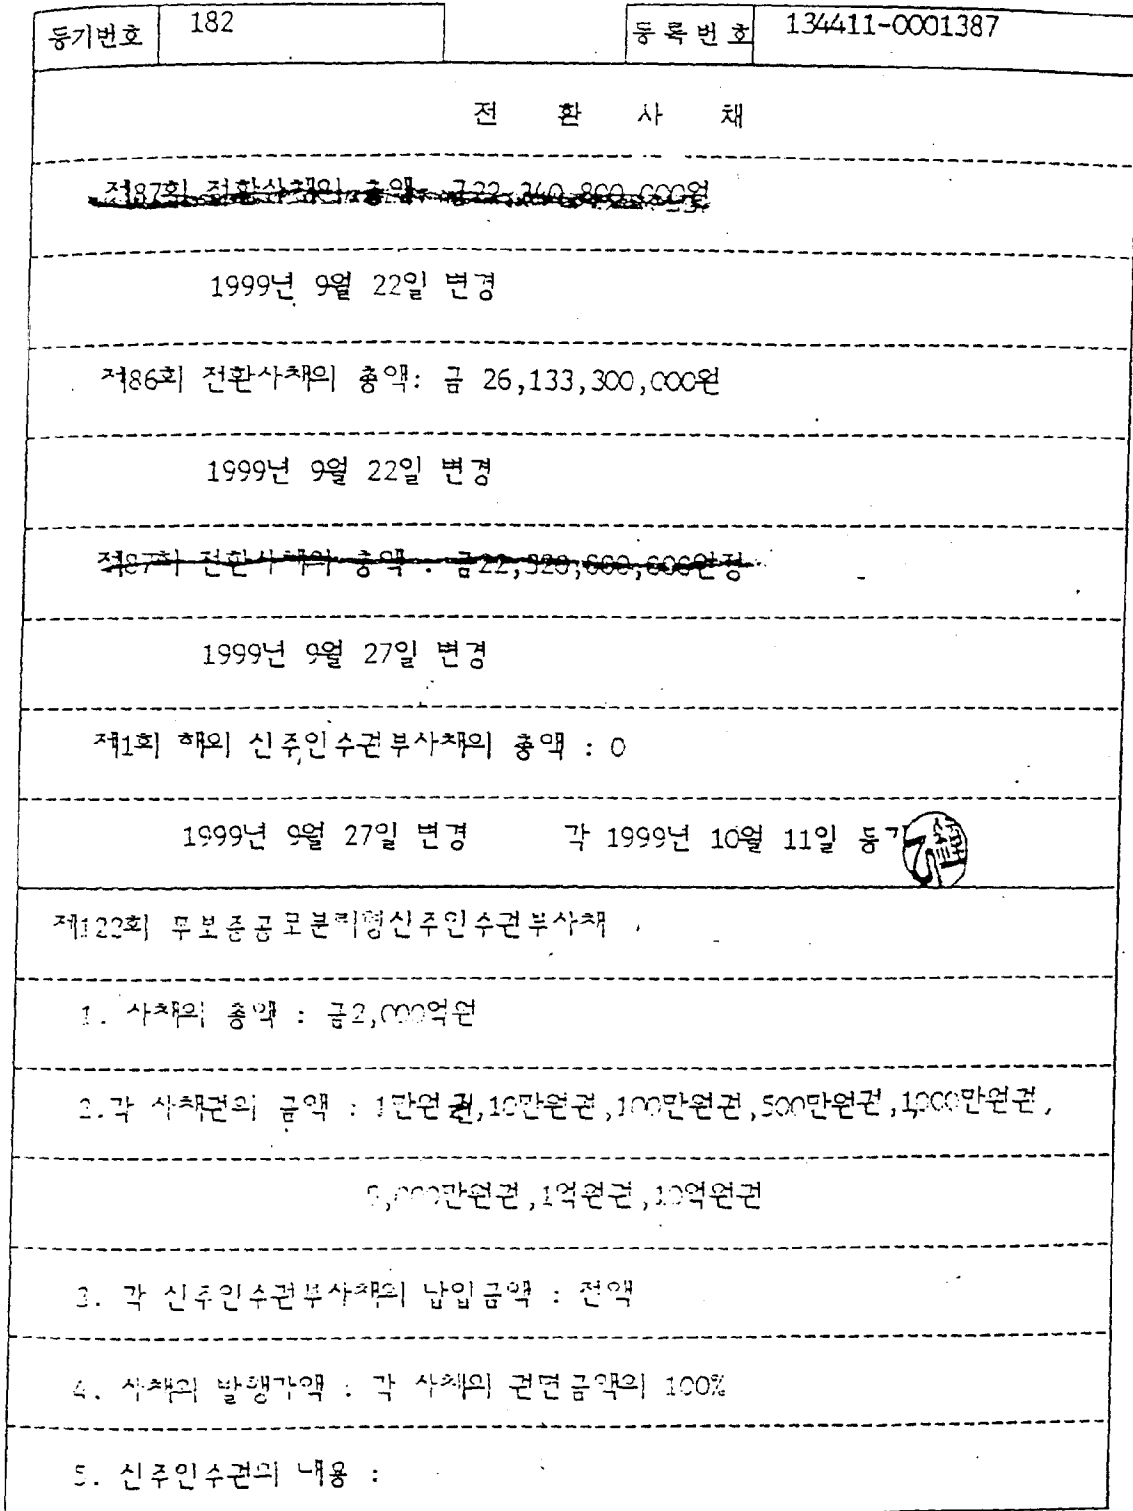 등기번호 182 등록번호 134411-0001387
전 환 사 채
제87회 전환사채의 총액: 금22,340,800,000원
1999년 9월 22일 변경
제86회 전환사채의 총액: 금 26,133,300,000원
1999년 9월 22일 변경
제87회 전환사채의 총액 : 금22,320,600,000원정
1999년 9월 27일 변경
제1회 해외 신주인수권부사채의 총액 : 0
1999년 9월 27일 변경 각 1999년 10월 11일 등기
제122회 무보증공모분리형신주인수권부사채
1. 사채의 총액 : 금2,000억원
2.각 사채권의 금액 : 1만원권,10만원권,100만원권,500만원권,1,000만원권,
5,000만원권,1억원권,10억원권
3. 각 신주인수권부사채의 납입금액 : 전액
4. 사채의 발행가액 : 각 사채의 권면금액의 100%
5. 신주인수권의 내용 :